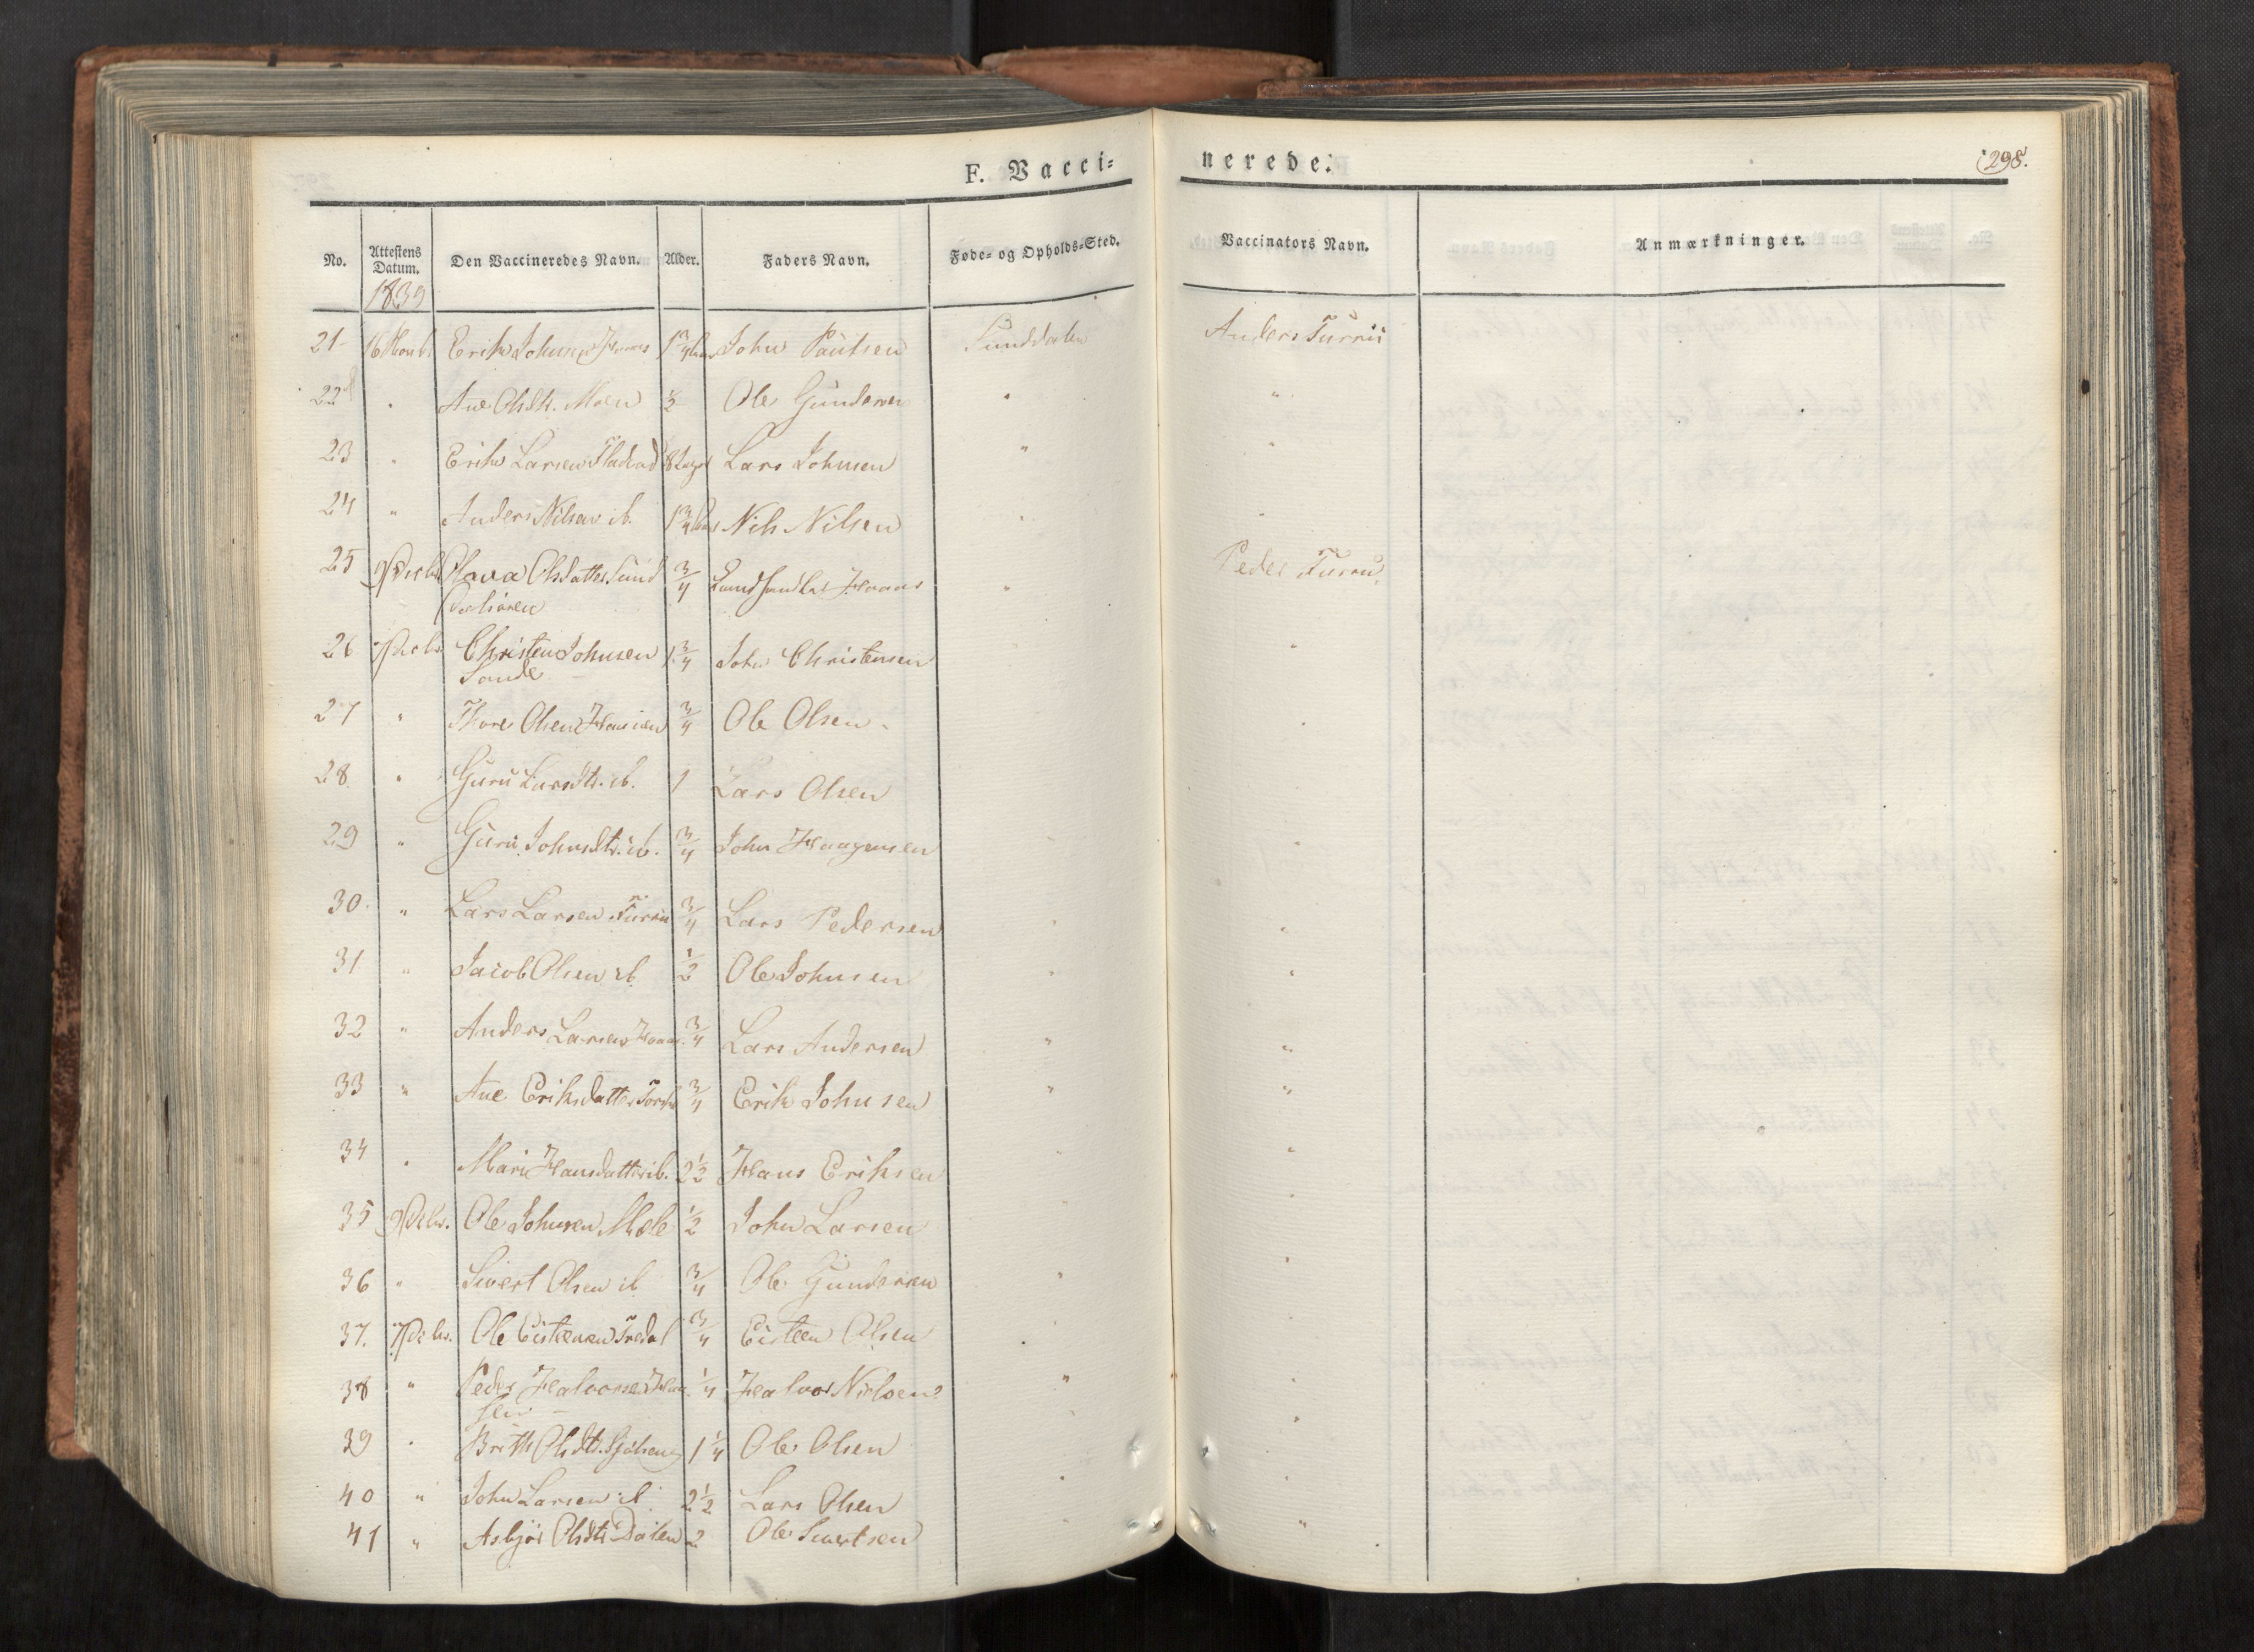 F. Vacci=
nerede.
298.
No. Attestens Datum. Den Vaccineredes Navn. Alder. Faders Navn. Føde= og Opholds=Sted. Vaccinators Navn. Anmærkninger.
1839
21 Erik Johnsen 1 3/4 John Paulsen Sunddalen Anders Furru
22 " Ane Olsdtr. Moen 1/2 Ole Gundersen " "
23 " Erik Larsen Lars Johnsen " "
24 " Anders Nilsen ib. 1 3/4 Nils Nilsen " "
25 Olava Olsdatter Sund 3/4 Landhandler " Peder Furru
26 Christen Johnsen 1 3/4 John Christensen "
Sande
27 " Thore Olsen 3/4 Ole Olsen "
28 " Guru Larsdtr. ib. 1 Lars Olsen
29 " Guru Johnsdtr. ib. 3/4 John Haagensen "
30. " Lars Larsen Furru 3/4 Lars Pedersen " "
31 " Jacob Olsen ib 1/2 Ole Johnsen " "
32 " Anders Larsen 3/4 Lars Andersen " "
33 " Ane Eriksdatter 3/4 Erik Johnsen " "
34 " Marie Hansdatter ib. 2 1/2 Hans Eriksen " "
35 Ole Johnsen Mæle 1/2 John Larsen " "
36 " Sivert Olsen ib 3/4 Ole Gundersen " "
37. Ole Eisteensen Tredal 3/4 Eisteen Olsen " "
38 " Peder Halvorsen 1/4 Halvor Nielsen " "
39 " Brith Olsdtr. 1 1/4 Ole Olsen " "
40 " John Larsen ib. 2 1/2 Lars Olsen " "
41 " Olsdtr Dalen 2 Ole Sivertsen " "